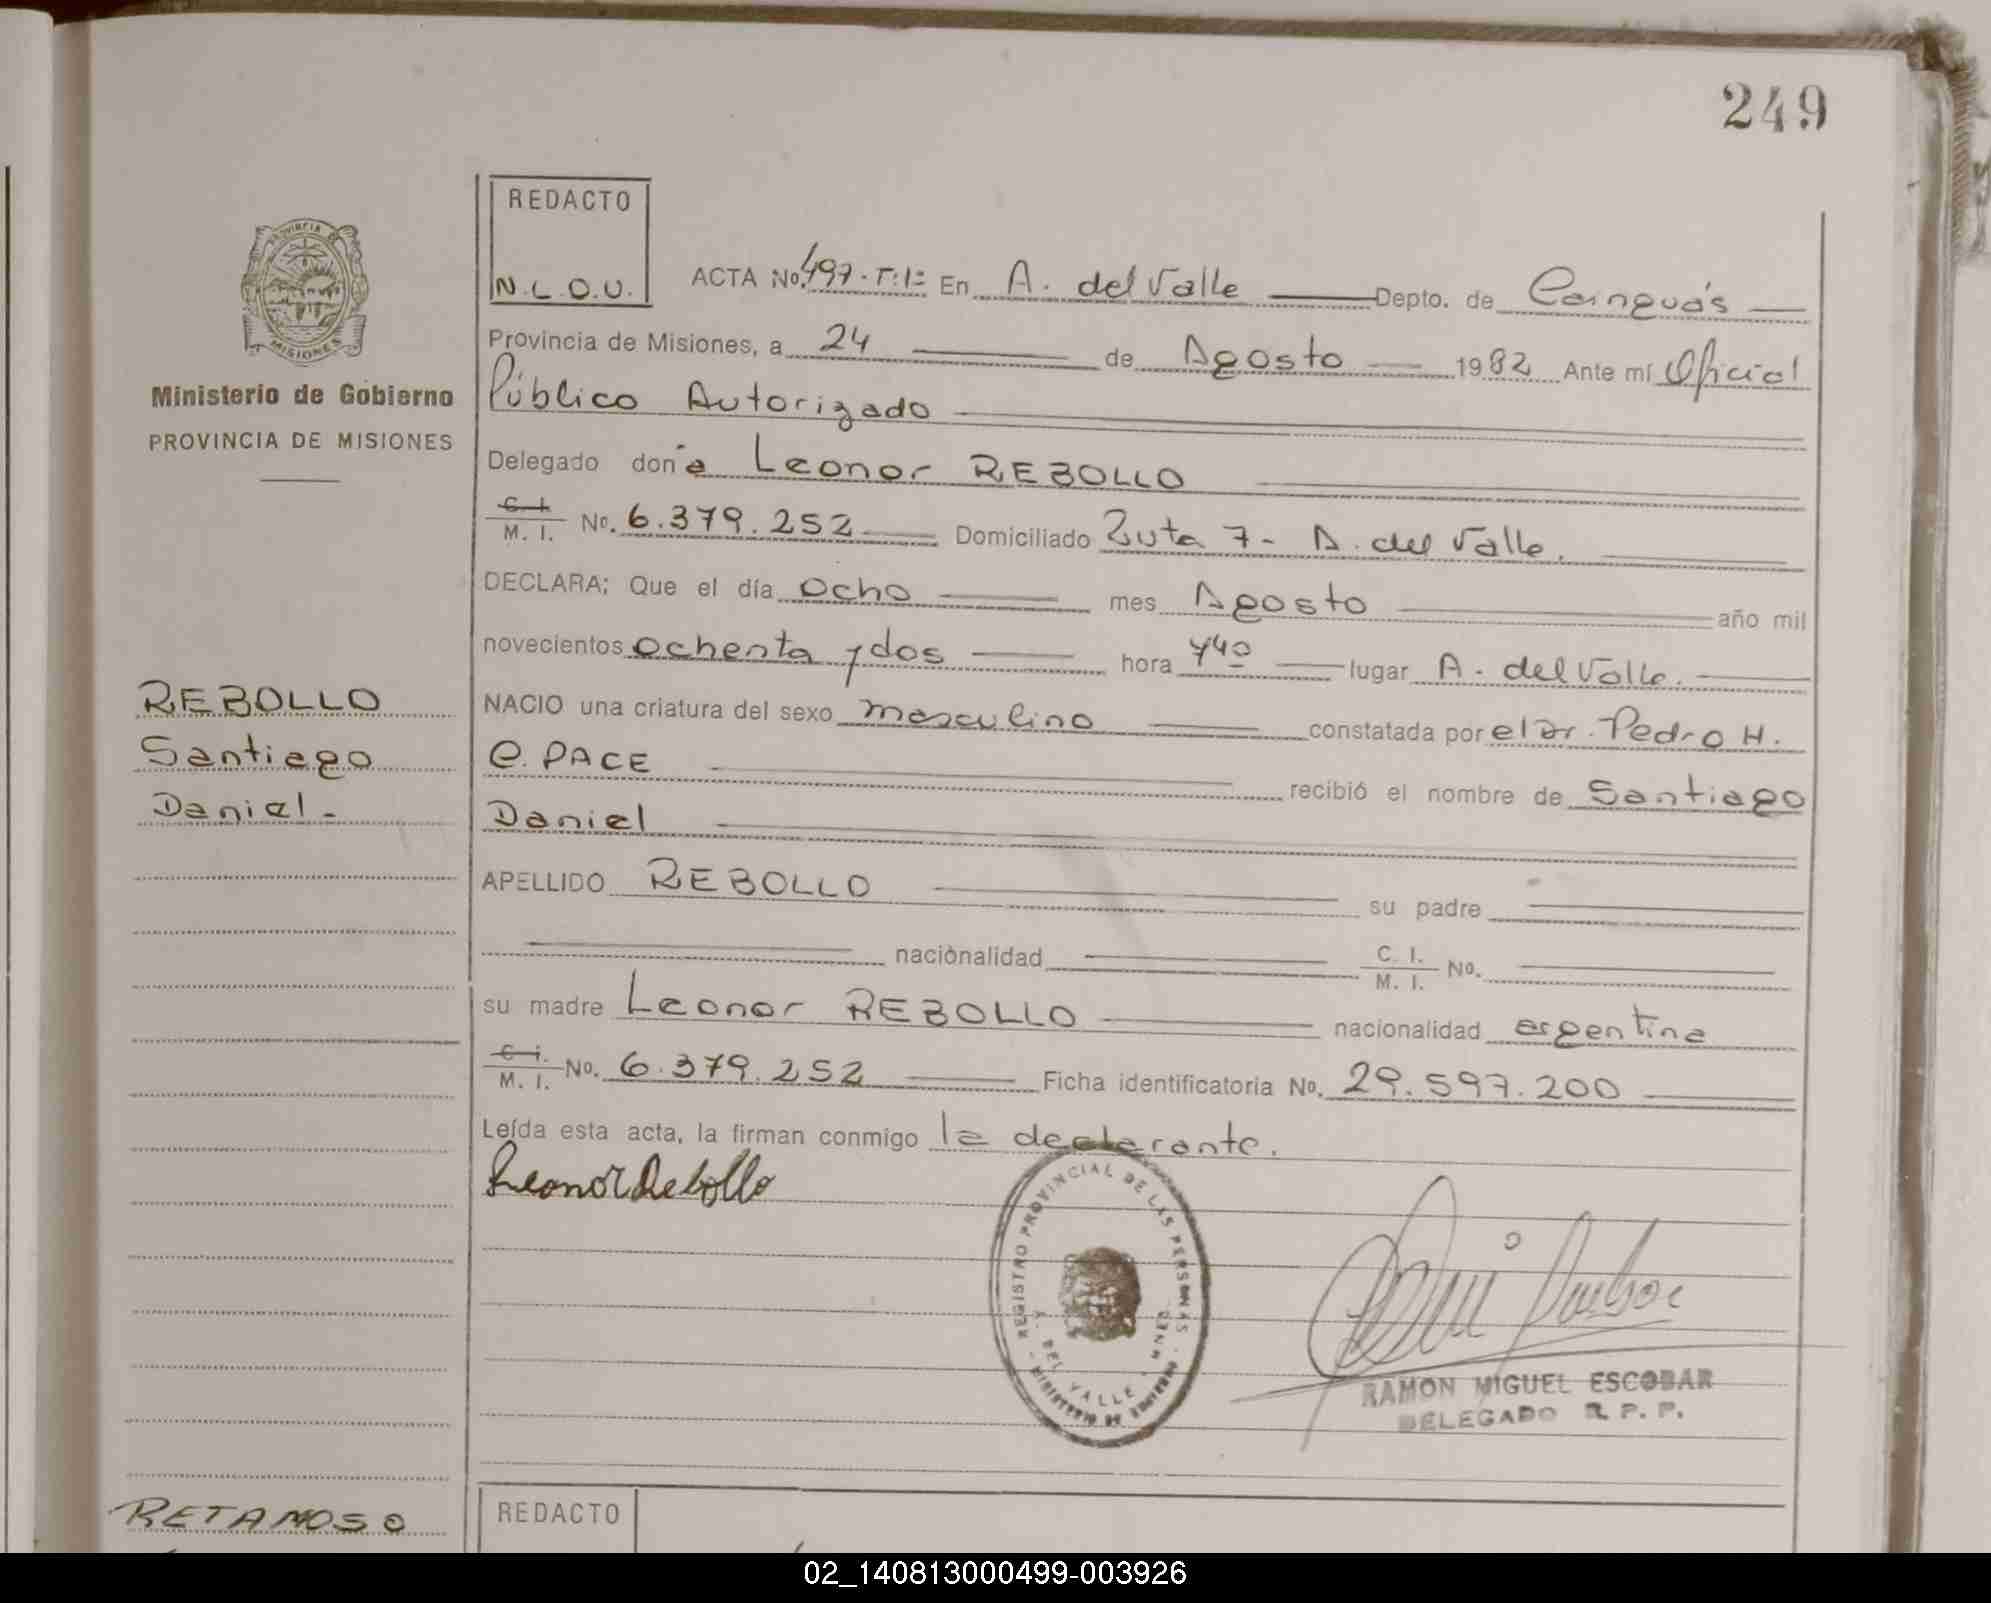 249
REDACTO
N.L.O.U.
PROVINCIA DE
MISIONES
Ministerio de Gobierno
PROVINCIA DE MISIONES
ACTA No. 497. T: 1º En A. del Valle Depto. de Cainguás
Provincia de Misiones, a 24 de Agosto 1982 Ante mí Oficial
Público Autorizado
Delegado doña Leonor REBOLLO
C. I. M. I. No. 6.379.252 Domiciliado Ruta 7- A. del Valle.
DECLARA; Que el día ocho mes Agosto año mil
novecientos ochenta y dos hora lugar A. del Valle.
REBOLLO
Santiago
Daniel.
NACIO una criatura del sexo masculino constatada por el Dr. Pedro H.
C. PACE recibió el nombre de Santiago
Daniel
APELLIDO REBOLLO su padre
nacionalidad C. I. M. I. No.
su madre Leonor REBOLLO nacionalidad argentina
C. I. M. I. No. 6.379.252 Ficha identificatoria No. 29.597.200
Leída esta acta, la firman conmigo la declarante.
Leonor Rebollo
REGISTRO PROVINCIAL DE LAS PERSONAS
A. DEL VALLE - MNES
MINISTERIO DE GOBIERNO
RAMON MIGUEL ESCOBAR
DELEGADO R. P. P.
RETAMOSO
REDACTO
02_140813000499-003926